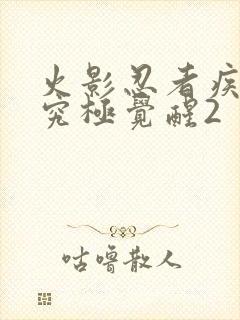 火影忍者疾
究極覺醒2
咕嚕散人